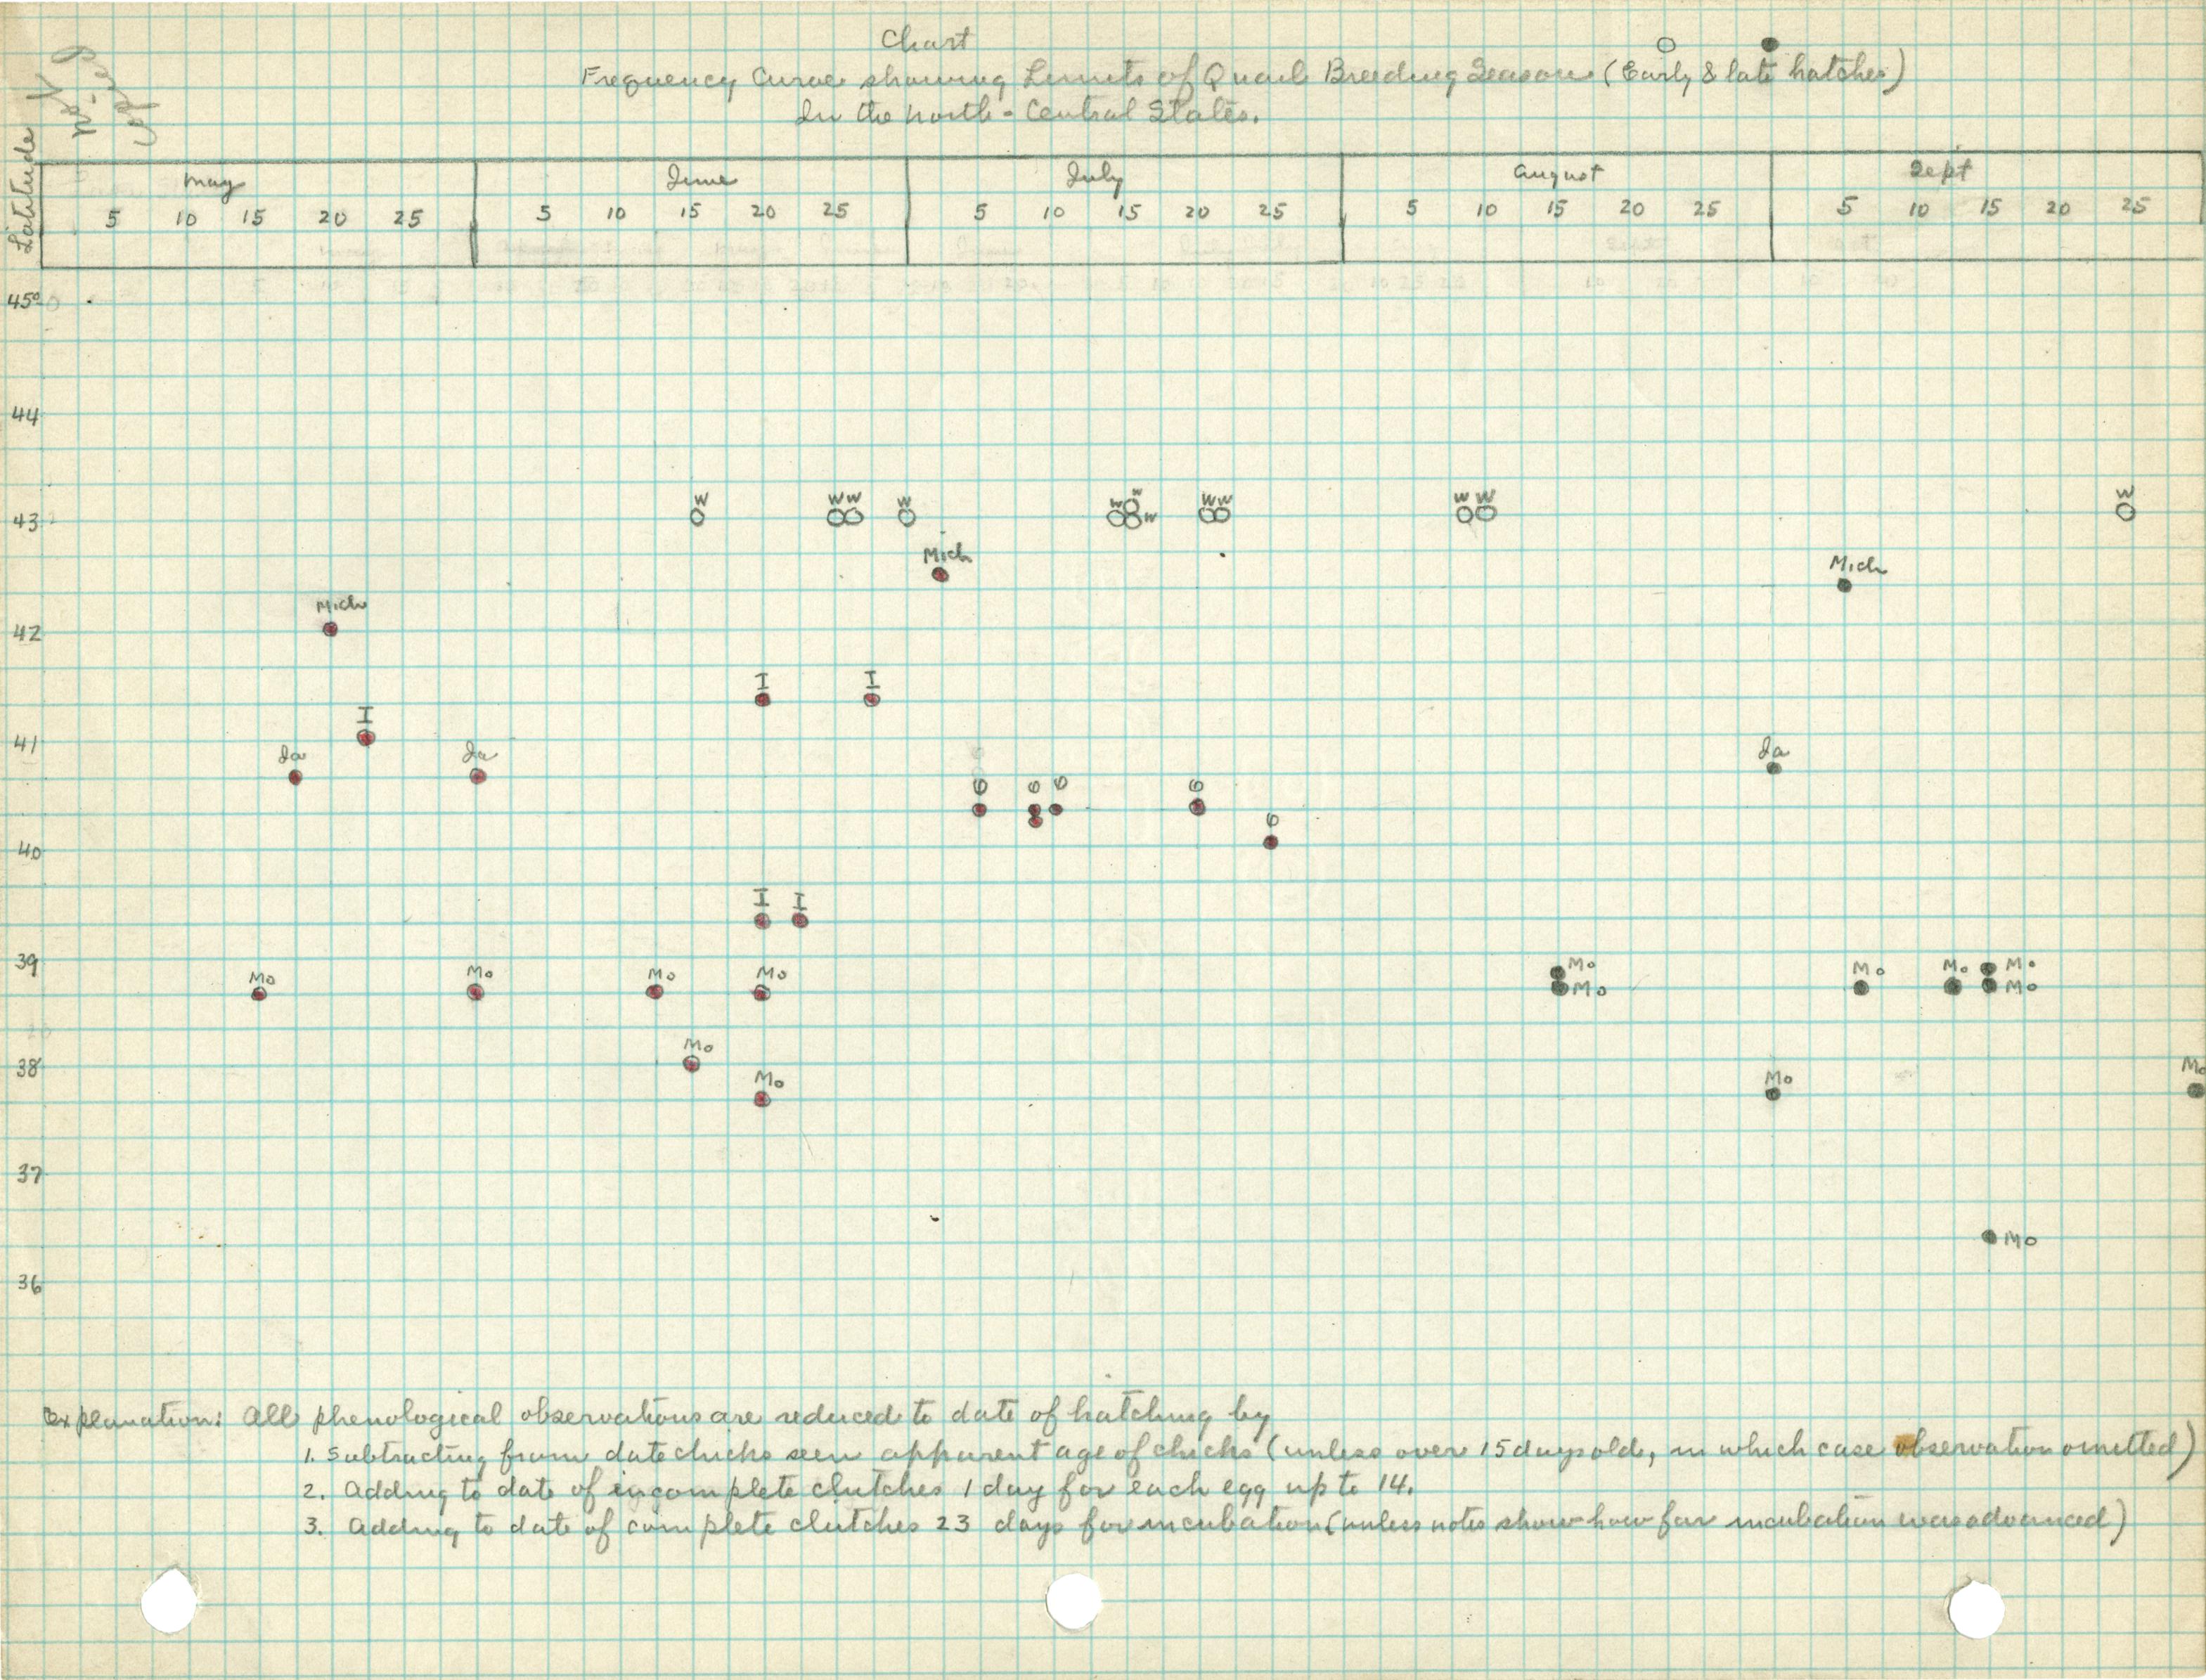 Chart
Frequency Curve showing Limits of Quail Breeding Season (Early & late hatches)
In the north-Central States.
Latitude
May June July August Sept
5 10 15 20 25 5 10 15 20 25 5 10 15 20 25 5 10 15 20 25 5 10 15 20 25
45°
44
W W W W W W W W W W W W
43
Mich Mich
Mich
42
I I
I
41
Ia Ia Ia
6 6 6 6
6
40
I I
39
Mo Mo Mo Mo Mo Mo Mo Mo
Mo Mo
Mo
38
Mo
Mo Mo
37
Mo
36
Explanation: All phenological observations are reduced to date of hatching by
1. Subtracting from date chicks seen apparent age of chicks (unless over 15 days old, in which case observation omitted)
2. Adding to date of incomplete clutches 1 day for each egg up to 14.
3. Adding to date of complete clutches 23 days for incubation (unless notes show how far incubation was advanced)